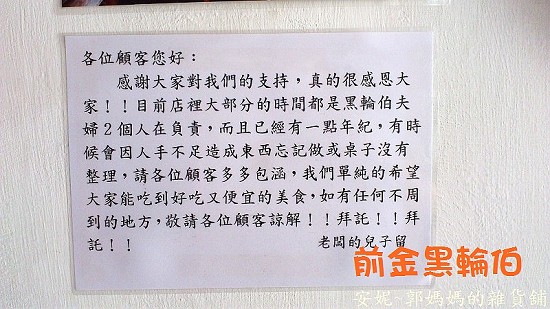 各位顧客您好：
感謝大家對我們的支持，真的很感恩大
家！！目前店裡大部分的時間都是黑輪伯夫
婦2個人在負責，而且已經有一點年紀，有時
候會因人手不足造成東西忘記做或桌子沒有
整理，請各位顧客多多包涵，我們單純的希望
大家能吃到好吃又便宜的美食，如有任何不周
到的地方，敬請各位顧客諒解！！拜託！！拜
託！！
老闆的兒子留
前金黑輪伯
安妮~郭媽媽的雜貨舖